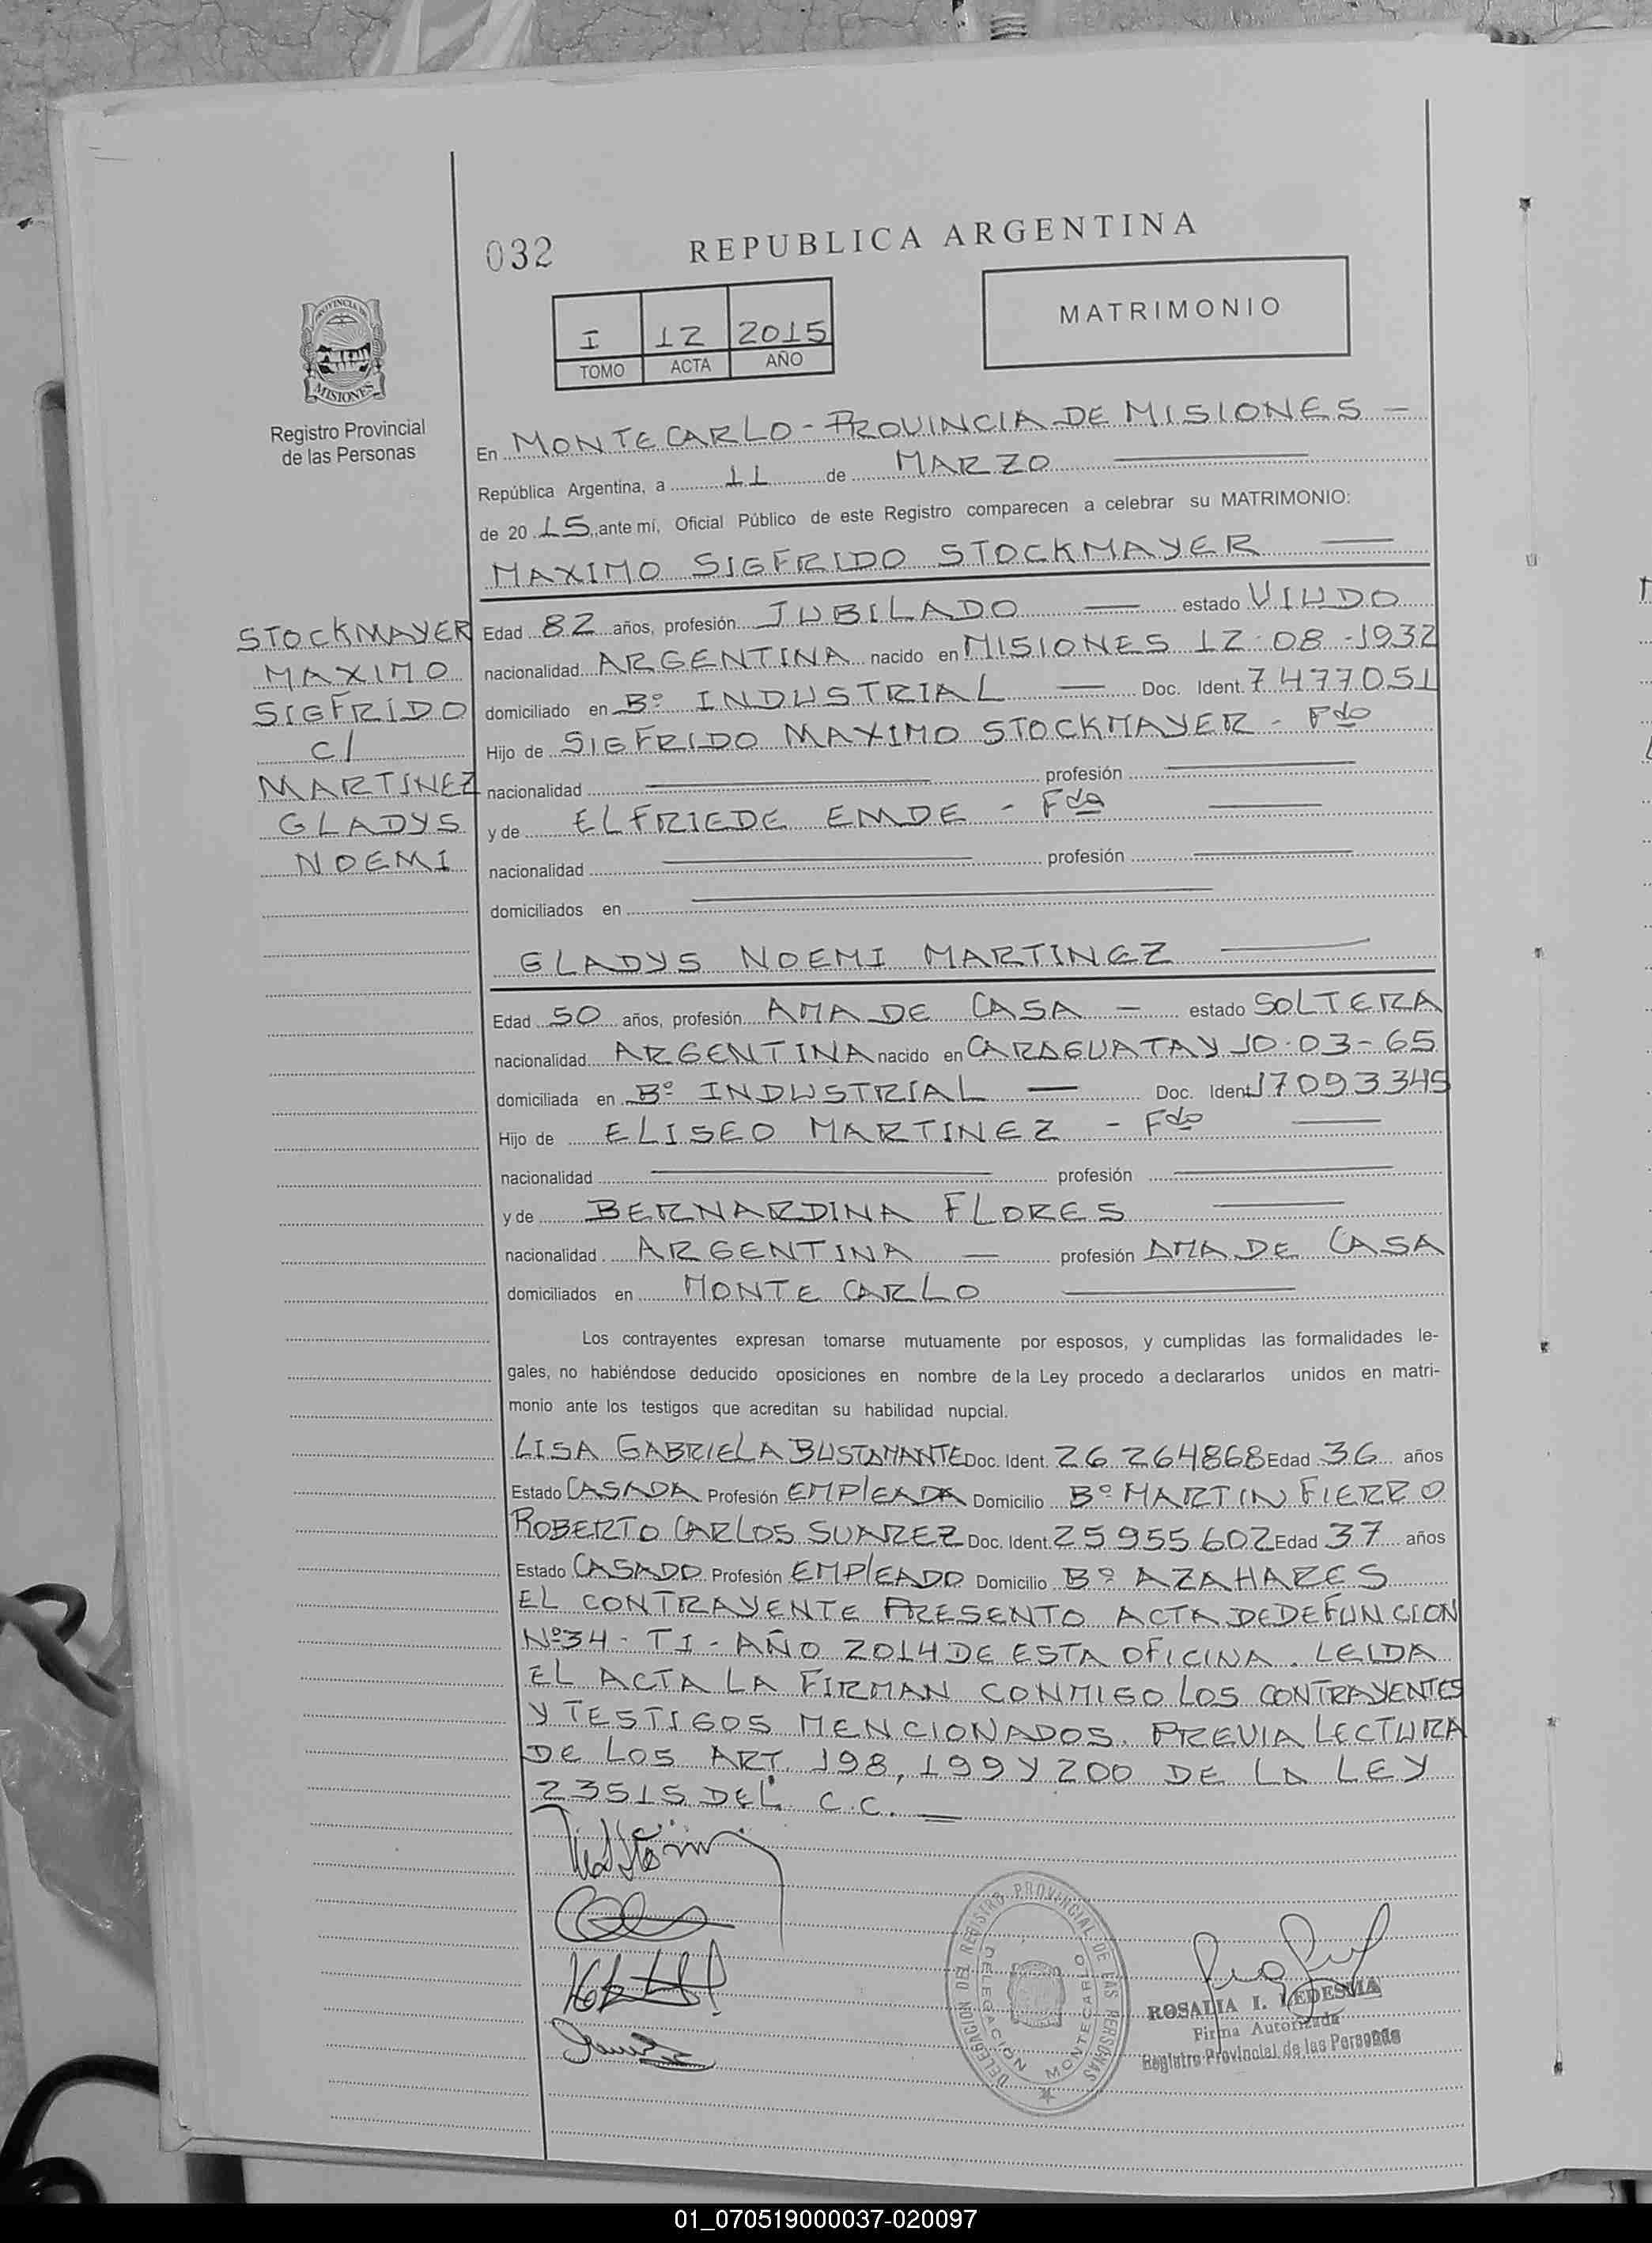 032
REPUBLICA ARGENTINA
PROVINCIA DE
MISIONES
Registro Provincial
de las Personas
I 12 2015
TOMO ACTA AÑO
MATRIMONIO
En MONTECARLO - PROVINCIA DE MISIONES -
República Argentina, a 11 de MARZO
de 20 15 ante mí, Oficial Público de este Registro comparecen a celebrar su MATRIMONIO:
MAXIMO SIGFRIDO STOCKMAYER
STOCKMAYER
MAXIMO
SIGFRIDO
c/
MARTINEZ
GLADYS
NOEMI
Edad 82 años, profesión JUBILADO estado VIUDO
nacionalidad ARGENTINA nacido en MISIONES 12-08-1932
domiciliado en Bº INDUSTRIAL Doc. Ident. 7477051
Hijo de SIGFRIDO MAXIMO STOCKMAYER - Fdo
nacionalidad profesión
y de ELFRIEDE EMDE - Fda
nacionalidad profesión
domiciliados en
GLADYS NOEMI MARTINEZ
Edad 50 años, profesión AMA DE CASA - estado SOLTERA
nacionalidad ARGENTINA nacido en CARAGUATAY 10-03-65
domiciliada en Bº INDUSTRIAL Doc. Ident. 17093345
Hijo de ELISEO MARTINEZ - Fdo
nacionalidad profesión
y de BERNARDINA FLORES
nacionalidad ARGENTINA profesión AMA DE CASA
domiciliados en MONTECARLO
Los contrayentes expresan tomarse mutuamente por esposos, y cumplidas las formalidades le-
gales, no habiéndose deducido oposiciones en nombre de la Ley procedo a declararlos unidos en matri-
monio ante los testigos que acreditan su habilidad nupcial.
LISA GABRIELA BUSTAMANTE Doc. Ident. 26 264868 Edad 36 años
Estado CASADA Profesión EMPLEADA Domicilio Bº MARTIN FIERRO
ROBERTO CARLOS SUAREZ Doc. Ident. 25955602 Edad 37 años
Estado CASADO Profesión EMPLEADO Domicilio Bº AZAHARES
EL CONTRAYENTE PRESENTO ACTA DE DEFUNCION
Nº34 - TI - AÑO 2014 DE ESTA OFICINA. LEIDA
EL ACTA LA FIRMAN CONMIGO LOS CONTRAYENTES
Y TESTIGOS MENCIONADOS. PREVIA LECTURA
DE LOS ART. 198, 199 Y 200 DE LA LEY
23515 DEL C.C.
DELEGACION DEL REGISTRO PROVINCIAL DE LAS PERSONAS
DELEGACIÓN MONTECARLO
ROSALIA I. LEDESMA
Firma Autorizada
Registro Provincial de las Personas
01_070519000037-020097